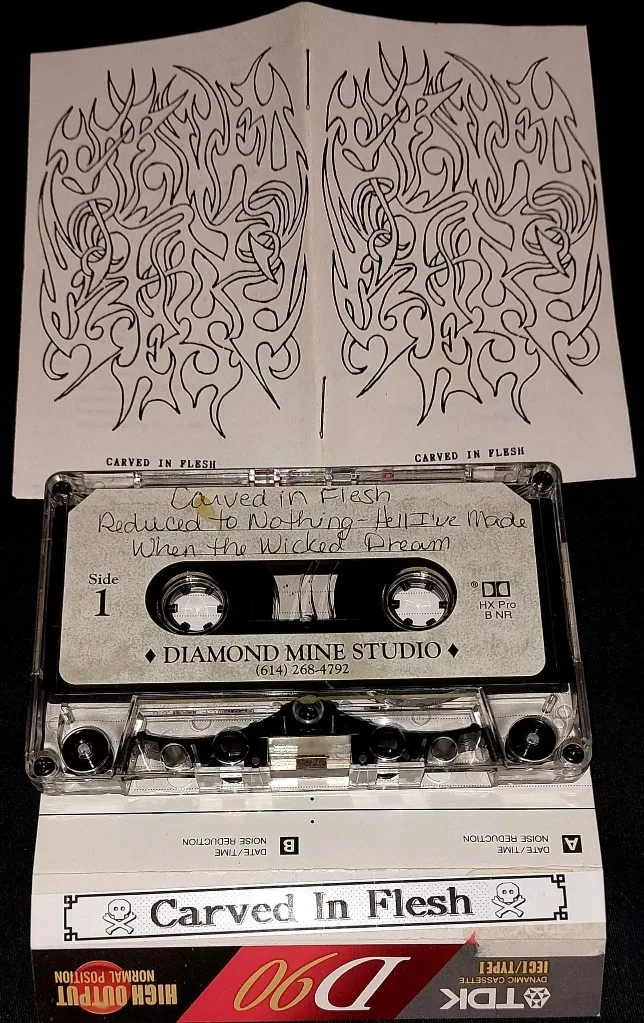 CARVED
IN
FLESH
CARVED
IN
FLESH
CARVED IN FLESH
CARVED IN FLESH
Carved in Flesh
Reduced to Nothing - Hell I've Made
When the Wicked Dream
Side
1
HX Pro
B NR
♦ DIAMOND MINE STUDIO ♦
(614) 268-4792
A DATE/TIME
NOISE REDUCTION
B DATE/TIME
NOISE REDUCTION
Carved In Flesh
TDK
DYNAMIC CASSETTE
IECI/TYPE I
D90
HIGH OUTPUT
NORMAL POSITION